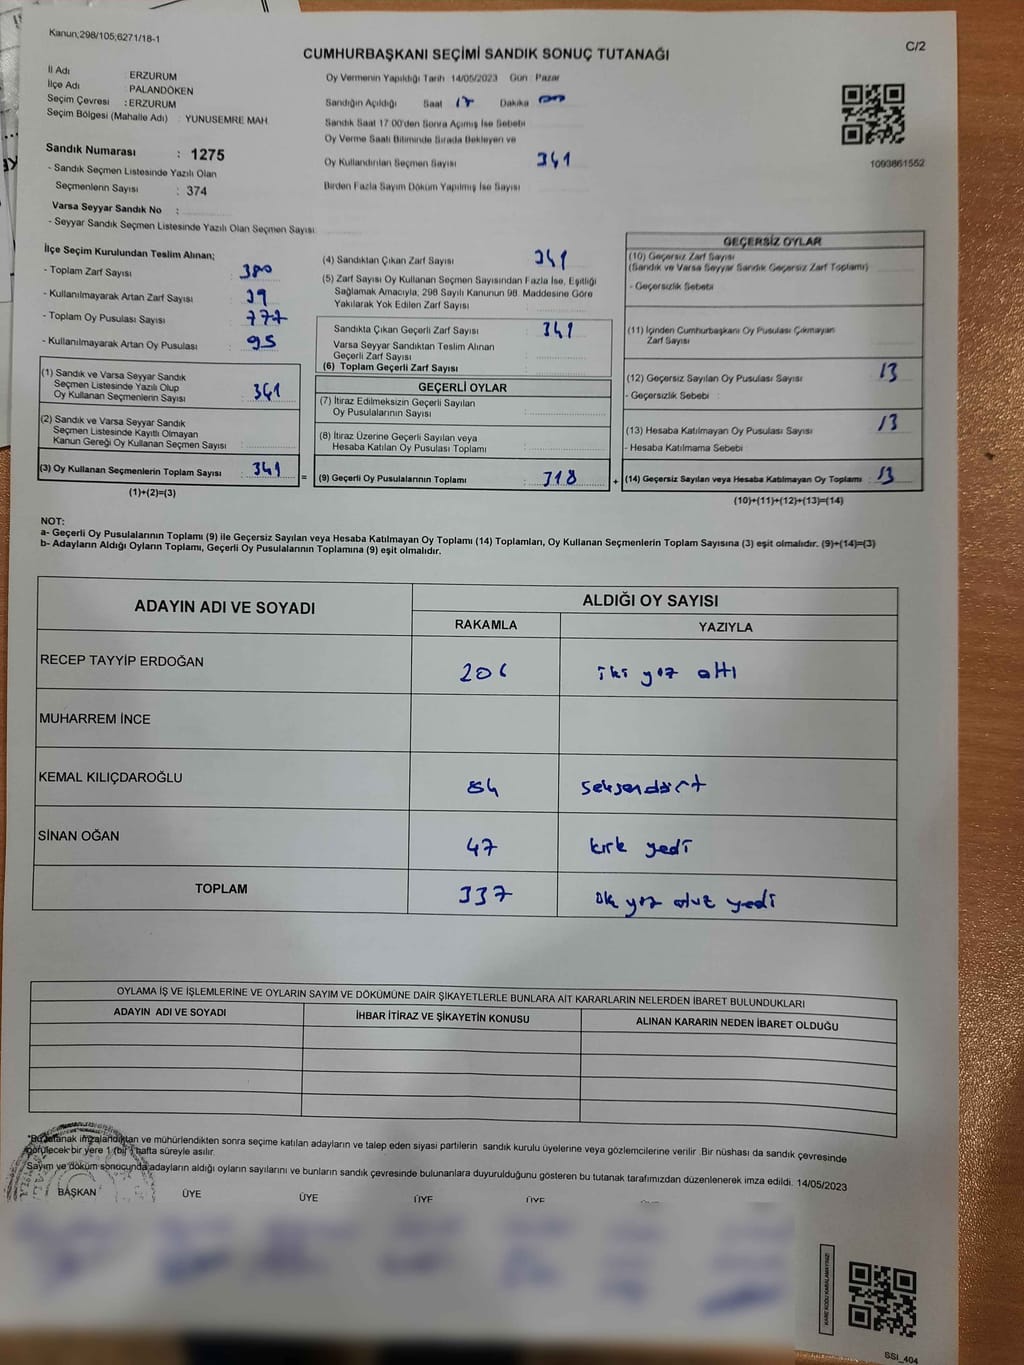 Kanun;298/105;6271/18-1
C/2
CUMHURBAŞKANI SEÇİMİ SANDIK SONUÇ TUTANAĞI
İl Adı : ERZURUM
İlçe Adı : PALANDÖKEN
Seçim Çevresi : ERZURUM
Seçim Bölgesi (Mahalle Adı) : YUNUSEMRE MAH.
Sandık Numarası : 1275
- Sandık Seçmen Listesinde Yazılı Olan
Seçmenlerin Sayısı : 374
Varsa Seyyar Sandık No :
- Seyyar Sandık Seçmen Listesinde Yazılı Olan Seçmen Sayısı:
Oy Vermenin Yapıldığı Tarih : 14/05/2023 Gün : Pazar
Sandığın Açıldığı Saat 17 Dakika 00
Sandık Saat 17:00'den Sonra Açımış İse Sebebi
Oy Verme Saati Bitiminde Sırada Bekleyen ve
Oy Kullandırılan Seçmen Sayısı 341
Birden Fazla Sayım Döküm Yapılmış İse Sayısı
1093861552
İlçe Seçim Kurulundan Teslim Alınan;
- Toplam Zarf Sayısı : 380
- Kullanılmayarak Artan Zarf Sayısı : 39
- Toplam Oy Pusulası Sayısı : 777
- Kullanılmayarak Artan Oy Pusulası : 95
(1) Sandık ve Varsa Seyyar Sandık
Seçmen Listesinde Yazılı Olup
Oy Kullanan Seçmenlerin Sayısı : 341
(2) Sandık ve Varsa Seyyar Sandık
Seçmen Listesinde Kayıtlı Olmayan
Kanun Gereği Oy Kullanan Seçmen Sayısı :
(3) Oy Kullanan Seçmenlerin Toplam Sayısı : 341
(1)+(2)=(3)
=
(4) Sandıktan Çıkan Zarf Sayısı : 341
(5) Zarf Sayısı Oy Kullanan Seçmen Sayısından Fazla İse, Eşitliği
Sağlamak Amacıyla; 298 Sayılı Kanunun 98. Maddesine Göre
Yakılarak Yok Edilen Zarf Sayısı :
Sandıkta Çıkan Geçerli Zarf Sayısı : 341
Varsa Seyyar Sandıktan Teslim Alınan
Geçerli Zarf Sayısı :
(6) Toplam Geçerli Zarf Sayısı :
GEÇERLİ OYLAR
(7) İtiraz Edilmeksizin Geçerli Sayılan
Oy Pusulalarının Sayısı :
(8) İtiraz Üzerine Geçerli Sayılan veya
Hesaba Katılan Oy Pusulası Toplamı :
(9) Geçerli Oy Pusulalarının Toplamı : 318
+
GEÇERSİZ OYLAR
(10) Geçersiz Zarf Sayısı
(Sandık ve Varsa Seyyar Sandık Geçersiz Zarf Toplamı)
- Geçersizlik Sebebi
(11) İçinden Cumhurbaşkanı Oy Pusulası Çıkmayan
Zarf Sayısı
(12) Geçersiz Sayılan Oy Pusulası Sayısı : 13
- Geçersizlik Sebebi :
(13) Hesaba Katılmayan Oy Pusulası Sayısı : 13
- Hesaba Katılmama Sebebi
(14) Geçersiz Sayılan veya Hesaba Katılmayan Oy Toplamı : 13
(10)+(11)+(12)+(13)=(14)
NOT:
a- Geçerli Oy Pusulalarının Toplamı (9) ile Geçersiz Sayılan veya Hesaba Katılmayan Oy Toplamı (14) Toplamları, Oy Kullanan Seçmenlerin Toplam Sayısına (3) eşit olmalıdır. (9)+(14)=(3)
b- Adayların Aldığı Oyların Toplamı, Geçerli Oy Pusulalarının Toplamına (9) eşit olmalıdır.
ADAYIN ADI VE SOYADI ALDIĞI OY SAYISI
RAKAMLA YAZIYLA
RECEP TAYYİP ERDOĞAN 206 iki yüz altı
MUHARREM İNCE
KEMAL KILIÇDAROĞLU 84 seksendört
SİNAN OĞAN 47 kırk yedi
TOPLAM 337 üç yüz otuz yedi
OYLAMA İŞ VE İŞLEMLERİNE VE OYLARIN SAYIM VE DÖKÜMÜNE DAİR ŞİKAYETLERLE BUNLARA AİT KARARLARIN NELERDEN İBARET BULUNDUKLARI
ADAYIN ADI VE SOYADI İHBAR İTİRAZ VE ŞİKAYETİN KONUSU ALINAN KARARIN NEDEN İBARET OLDUĞU
*Bu tutanak imzalandıktan ve mühürlendikten sonra seçime katılan adayların ve talep eden siyasi partilerin sandık kurulu üyelerine veya gözlemcilerine verilir. Bir nüshası da sandık çevresinde
görülecek bir yere 1 (bir) hafta süreyle asılır.
Sayım ve döküm sonucunda adayların aldığı oyların sayılarını ve bunların sandık çevresinde bulunanlara duyurulduğunu gösteren bu tutanak tarafımızdan düzenlenerek imza edildi. 14/05/2023
BAŞKAN ÜYE ÜYE ÜYE ÜYE
SSI_404